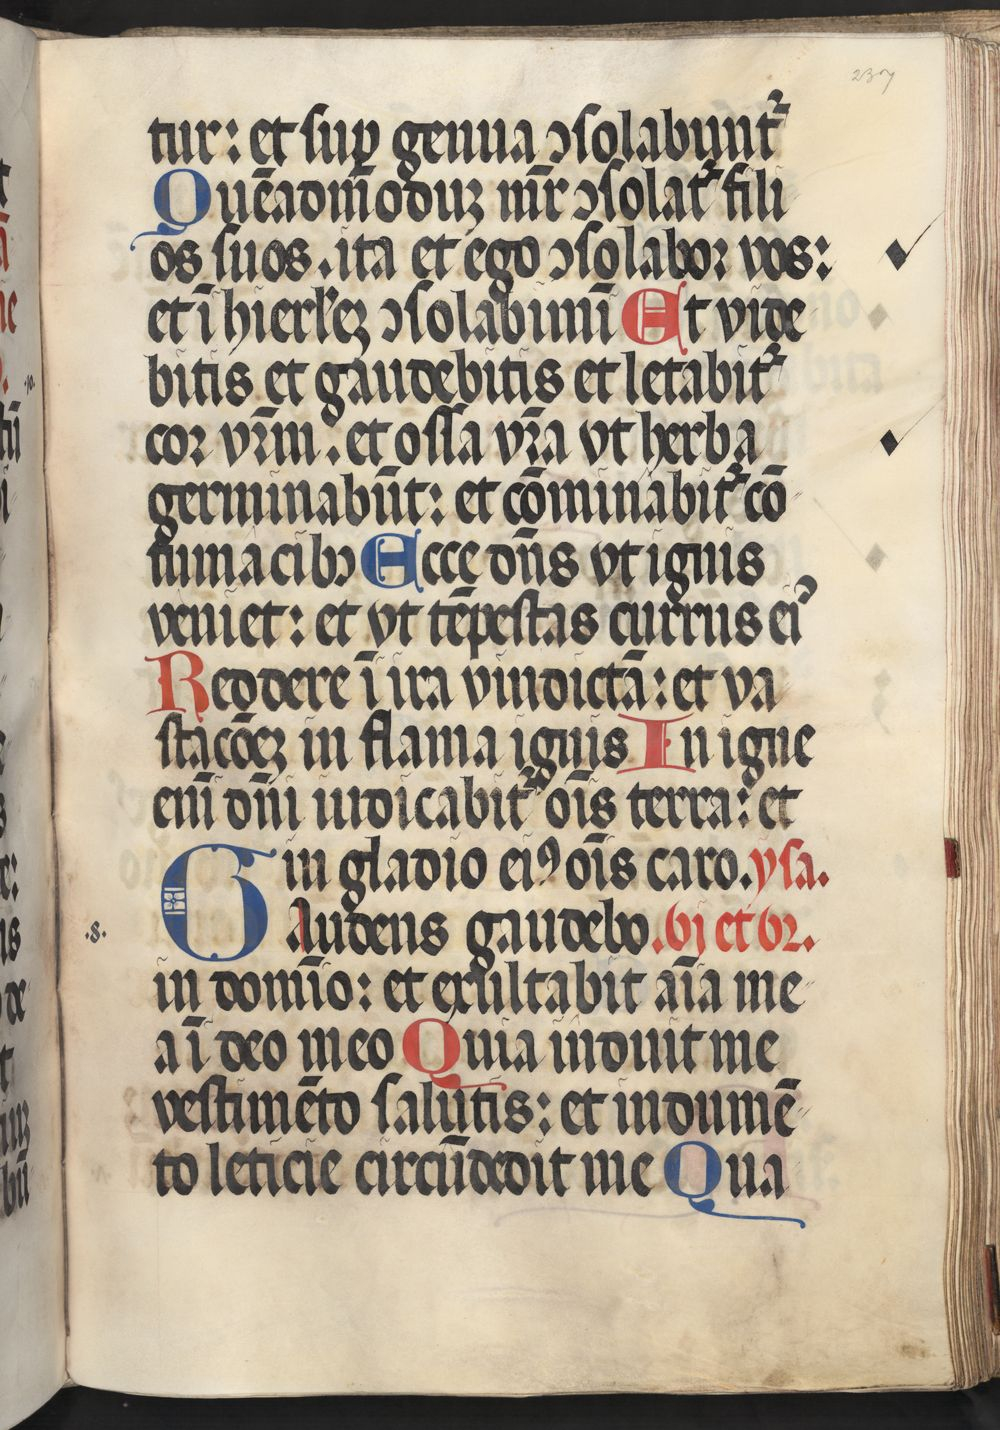 237
tur: et sup̱ genua ↄsolabunt᷑
Quēadm̄oduꝫ mr̄ ↄsolat᷑ fili
os suos. ita et ego ↄsolaboꝛ vos:
et ī hierl̄eꝫ ↄsolabimī Et vide
bitis et gaudebitis et letabit᷑
coꝛ vr̄m: et ossa vr̄a vt herba
germinabūt: et cōminabit᷑ cō
sumacibꝫ Ecce dn̄s vt ignis
veniet: et vt tēpestas currus eiꝰ
Reddere ī ira vindictā: et va
stacōeꝫ in flama ignis In igne
eni dn̄i iudicabit᷑ oīs terra: et
in gladio eiꝰ oīs caro. ysa.
Gaudens gaudebo. bj et bꝛ.
.8.
in domīo: et exultabit aīa me
a ī deo meo Quia induit me
vestimēto salutis: et indumē
to leticie circūdedit me Qua